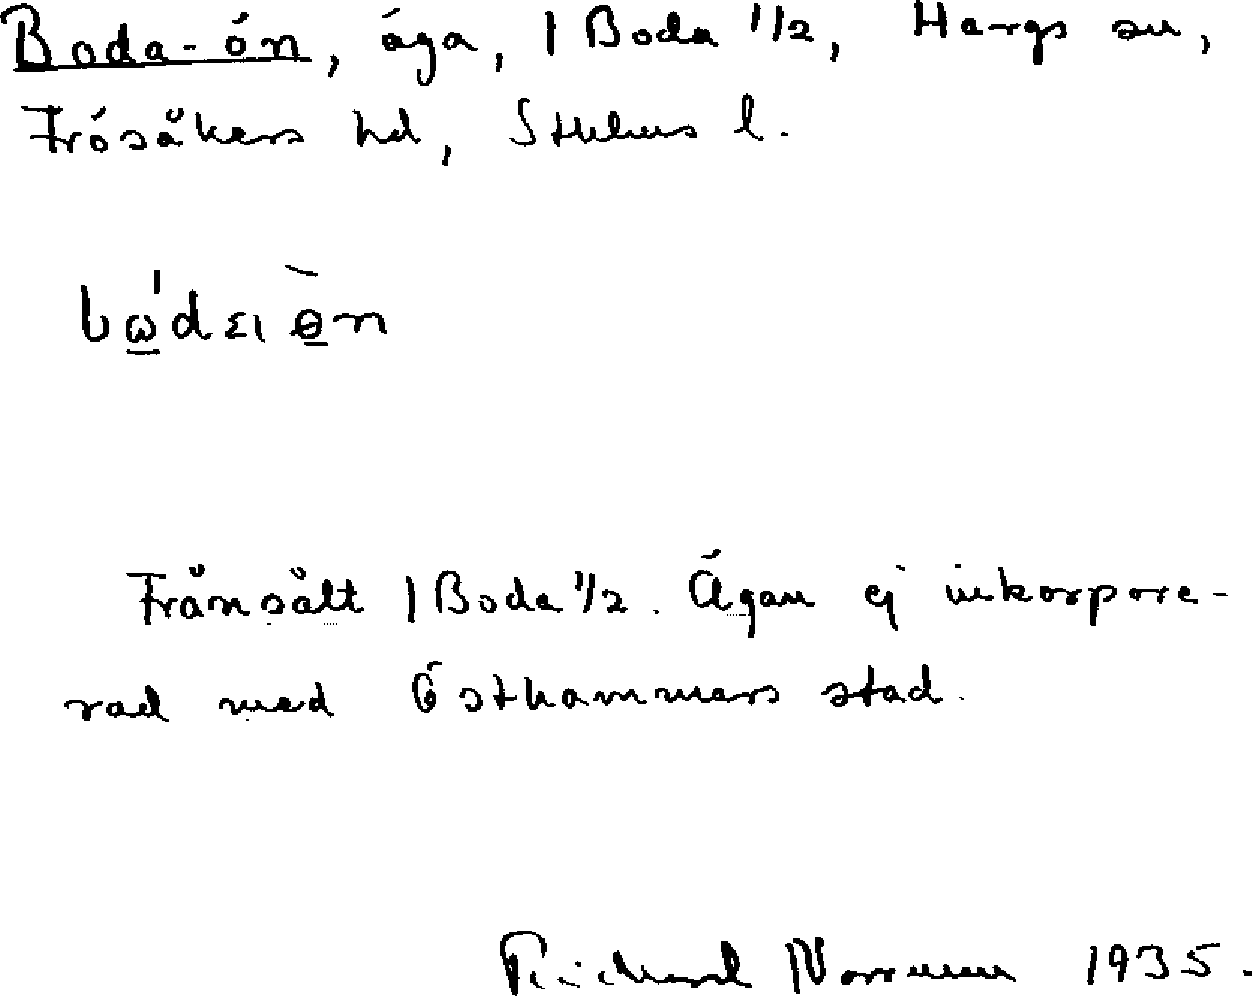 Boda-ön, äga, 1 Boda 1/2, Hargs sn,
Frösåkers hd, Sthlms l.
Frånsålt 1 Boda 1/2. Ägan ej inkorpore-
rad med Östhammars stad.
Richard Norrman 1935.